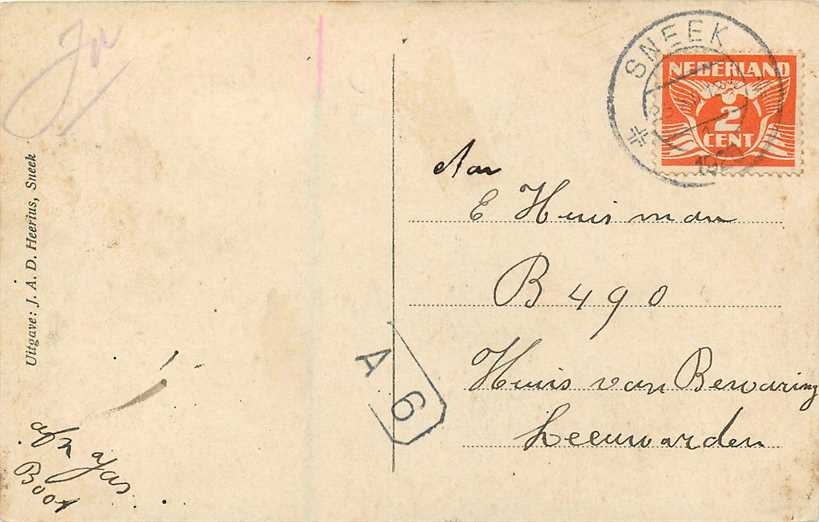 Jn
Uitgave: J. A. D. Heerius, Sneek
SNEEK
NEDERLAND
2
CENT
Aan
E Huisman
B 490
Huis van Bewaring
Leeuwarden
A 6
afz
Boot